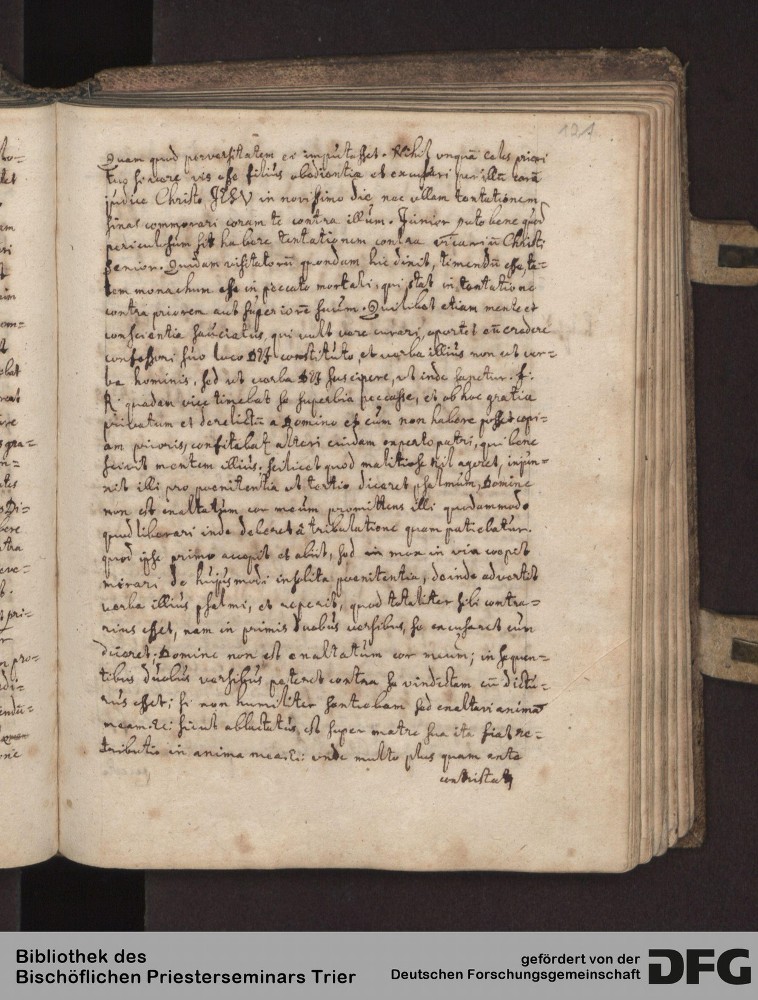 121
Quam quod perversitatem ei imputasset. Nihil unquã celes priori
tuo si vere vis esse filius obedientiæ et excusari per illũ corã
judice Christo JESU in novissimo die nec ullam tentationem
sinas commorari coram te contra illum. Junior puto bene quod
periculosum sit habere tentationem contra vicariũ Christi
senior. Quidam visitatorũ quondam hic dixit, timendũ esse, ta=
lem monachum esse in peccato mortali, qui stat in tentatione
contra priorem aut superiorẽ suum. Quilibet etiam mente et
conscientia sauciatus, qui vult vere curari, oportet eũ credere
confessori suo loco DEI constituto, et verba illius non ut ver=
ba hominis, sed ut verba DEI suscipere, ut inde sanetur. f:
R quadam vice timebat se superbia peccasse, et ob hoc gratia
privatum et derelictũ a Domino et cum non habere posset copi=
am prioris, confitebat alteri cuidam experto patri, qui bene
scivit mentem illius, scilicet quod malitiose nil ageret, injun=
xit illi pro poenitentia ut tertio diceret psalmum, Domine
non est exaltatum cor meum promittens illi quodammodo
quod liberari inde deberet â tribulatione quam patiebatur.
quod ipse primo accepit et abiit, sed in mox in via coepit
mirari de hujusmodi insolita poenitentia, deinde advertit
verba illius psalmi, et reperit, quod totaliter sibi contra=
rius esset, nam in primis duobus versibus, se excusaret cũm
diceret: Domine non est exaltatum cor meum; in sequen=
tibus duobus versibus peteret contra se vindictam cũ dictu=
rus esset; si non humiliter sentiebam sed exaltavi animã
meam &c: sicut ablactatus, est super matre sua ita fiat re=
tributio in anima mea &c: unde multo plus quam ante
contristatq
Bibliothek des
Bischöflichen Priesterseminars Trier
gefördert von der
Deutschen Forschungsgemeinschaft
DFG